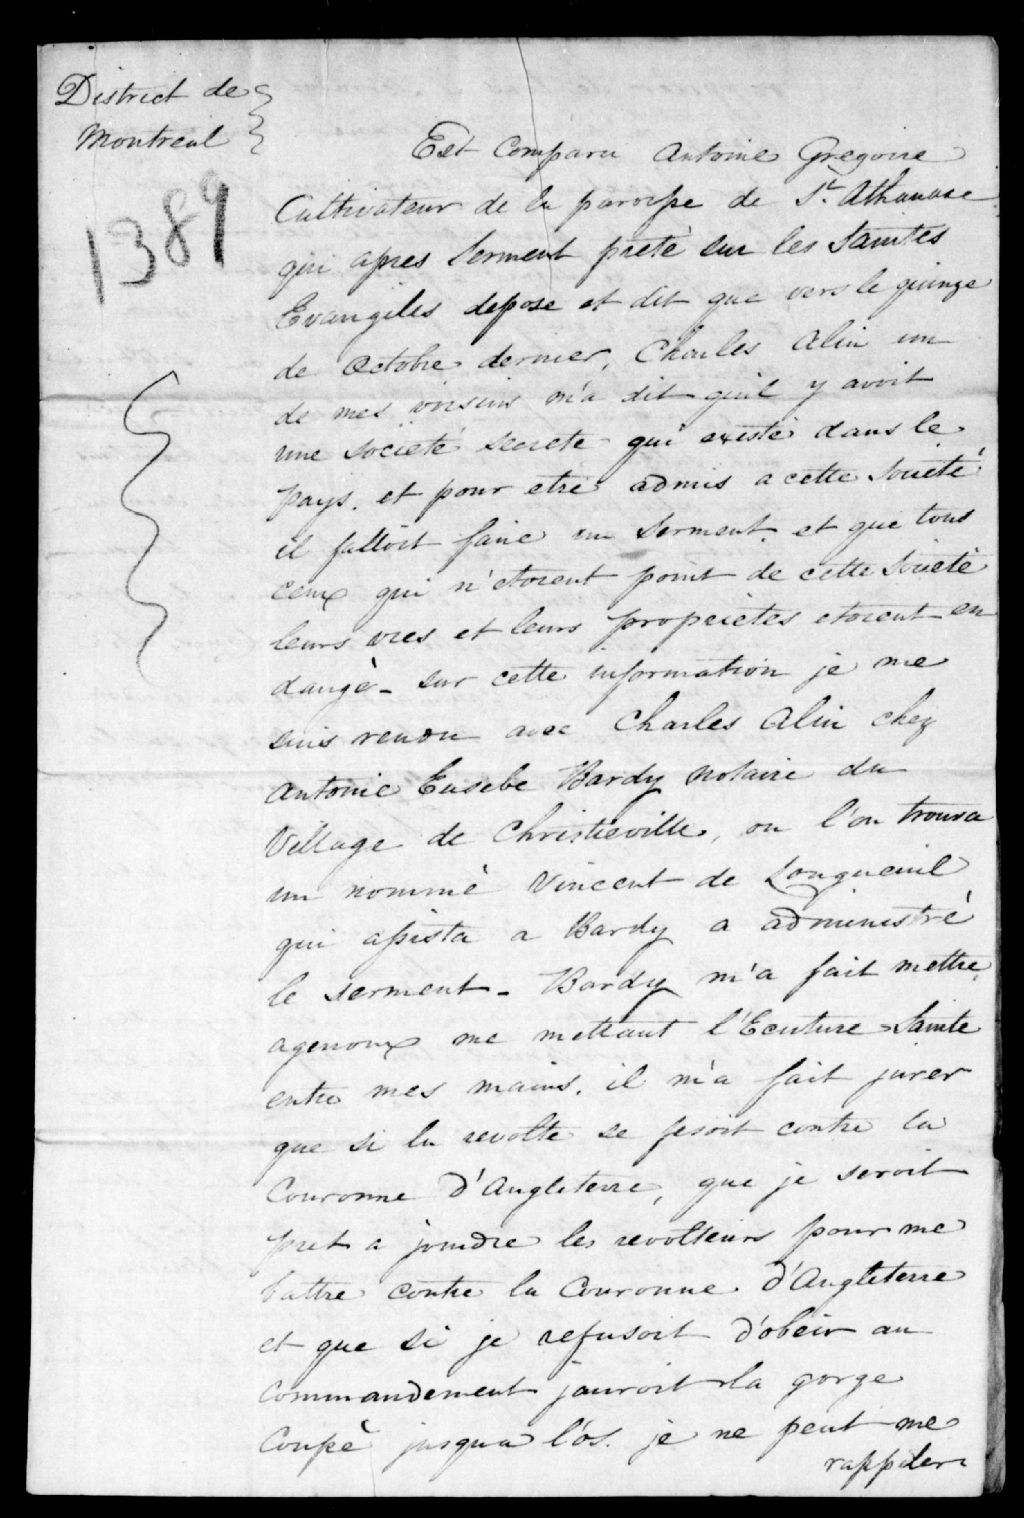 District de
Montreal
1389
Est Comparu Antoine Gregoire
Cultivateur de la paroisse de St. Athanase
qui apres Serment preté sur les Saintes
Evangiles depose et dit que vers le quinze
de Octobre dernier, Charles Alin un
de mes voisins m'a dit qu'il y avoit
une societé secrete qui existé dans le
pays. et pour etre admis a cette Societé
il falloit faire un serment. et que tous
ceux qui n'etoient point de cette Societé
leurs vies et leurs proprietes etoient en
dangè - sur cette information je me
suis rendu avec Charles Alin chez
Antoine Eusebe Bardy notaire du
Village de Christieville, ou l'on trouva
un nommé Vincent de Longueuil
qui assista a Bardy a administré
le serment - Bardy m'a fait mettre
agenoux me mettant l'Ecriture = Sainte
entre mes mains. il m'a fait jurer
que si la revolte se fesoit contre la
Couronne d'Angleterre, que je seroit
pret a joindre les revolteurs pour me
battre contre la Couronne d'Angleterre
et que si je refusoit d'obeir au
Commandement jauroit la gorge
Coupè jusqua l'os. je ne peut me
rappeler